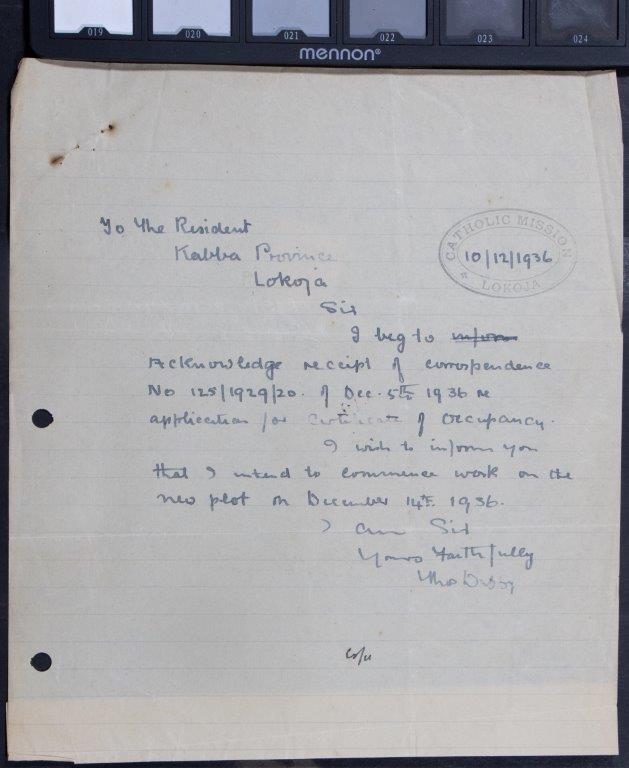 019 020 021 022 023 024
mennon®
To The Resident
Kabba Province
Lokoja
CATHOLIC MISSION
10/12/1936
LOKOJA
Sir
I beg to inform
Acknowledge receipt of corrospendence
No 125/1929/20. of Dec. 5th 1936 re
application for Certificate of Occupancy.
I wish to inform you
that I intend to commence work on the
new plot on December 14th 1936.
I am Sir
Yours Faithfully